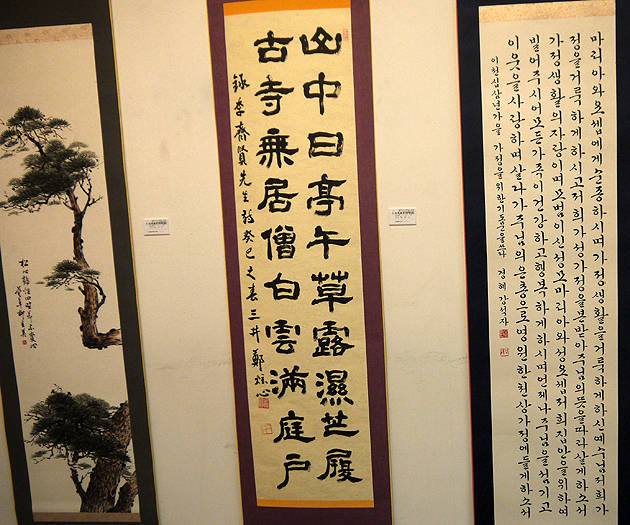 마리아와 요셉에게 순종하시며 가정생활을 거룩하게 하신 예수님 저희 가
정을 거룩하게 하시고 저희가 성가정을 본받아 주님의 뜻을 따라 살게 하소서
가정생활의 자랑이며 모범이신 성모 마리아와 성 요셉 저희 집안을 위하여
빌어주시어 모든 가족이 건강하고 행복하게 하시며 언제나 주님을 섬기고
이웃을 사랑하며 살다가 주님의 은총으로 영원한 천상가정에 들게 하소서
이천십삼년 가을 가정을 위한 기도문을 쓰다 경혜 강석자
山中日亭午草露濕芒屨
古寺無居僧白雲滿庭戶
錄李齊賢先生詩癸巳春三井鄭炫心